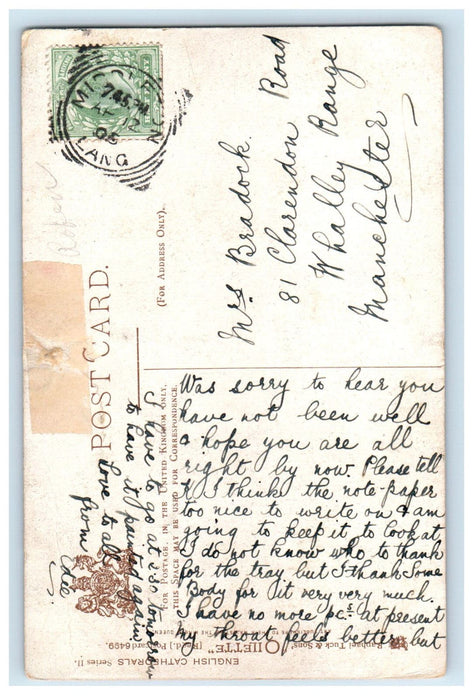 MIDDLETON
7.45 PM
AP 2
06
LANG
POST CARD.
(FOR ADDRESS ONLY).
FOR POSTAGE IN THE UNITED KINGDOM ONLY,
THIS SPACE MAY BE USED FOR CORRESPONDENCE.
Mrs Bradock.
81 Clarendon Road
Whalley Range
Manchester
Was sorry to hear you
have not been well
& hope you are all
right by now. Please tell
K I think the note-paper
too nice to write on & am
going to keep it to look at,
I do not know who to thank
for the tray but I thank some
body for it very very much.
I have no more pcs. at present
My throat feels better but
I have to go at 2.30 tomorrow
to have it painted again
love to all
from
RAPHAEL TUCK & SONS'
"OILETTE" [Regd.] Postcard 6499.
ENGLISH CATHEDRALS Series II.